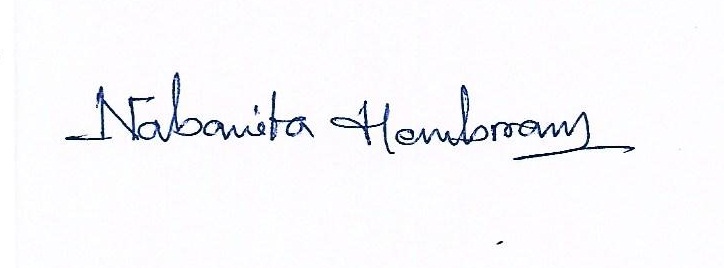 Nabanita Hembram